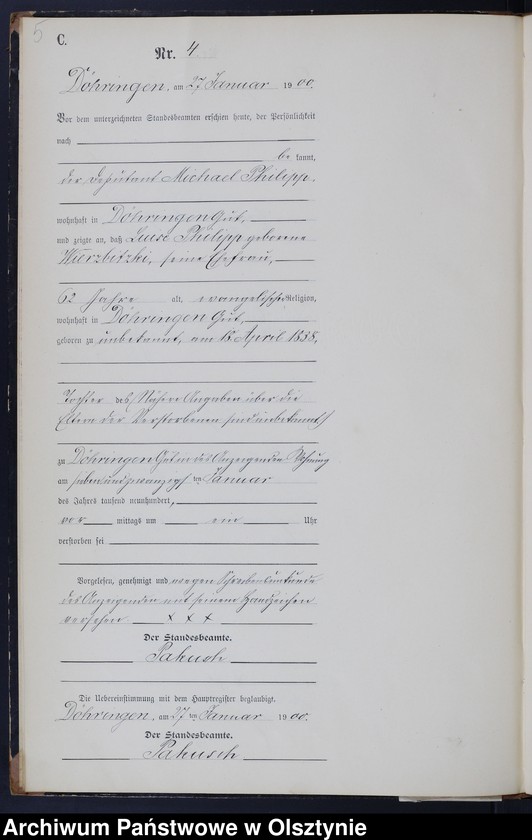 5
C.
Nr. 4
Döhringen, am 27 Januar 1900.
Vor dem unterzeichneten Standesbeamten erschien heute, der Persönlichkeit
nach
be kannt,
der Deputant Michael Philipp,
wohnhaft in Döhringen Gut,
und zeigte an, daß Luise Philipp geborene
Wurzbitzki, seine Ehefrau,
62 Jahre alt, evangelischer Religion,
wohnhaft in Döhringen Gut,
geboren zu unbekannt, am 18. April 1838,
Tochter des (Nähere Angaben über die
Eltern der Verstorbenen sind unbekannt)
zu Döhringen Gut in des Anzeigenden Wohnung
am siebenundzwanzigsten Januar
des Jahres tausend neunhundert,
vor mittags um ein Uhr
verstorben sei
Vorgelesen, genehmigt und wegen Schreibensunkunde
des Anzeigenden mit seinem Handzeichen
versehen x x x
Der Standesbeamte.
Pakusch
Die Uebereinstimmung mit dem Hauptregister beglaubigt.
Döhringen, am 27 ten Januar 1900.
Der Standesbeamte.
Pakusch
Archiwum Państwowe w Olsztynie